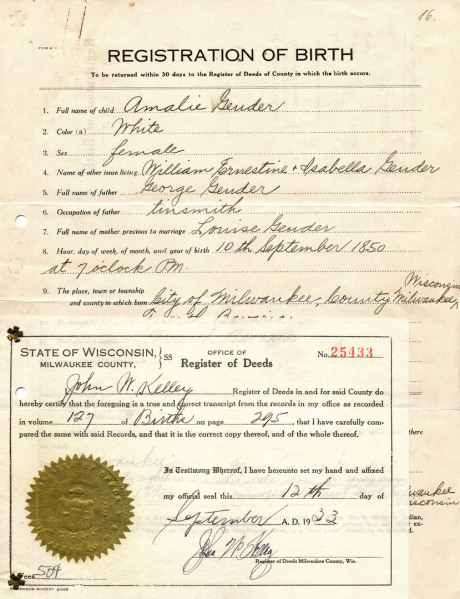 16.
FORM
REGISTRATION OF BIRTH
To be returned within 30 days to the Register of Deeds of County in which the birth occurs.
1. Full name of child Amalie Gender
2. Color (a) White
3. Sex female
4. Name of other issue living William Ernestine + Isabella Gender
5. Full name of father George Gender
6. Occupation of father tinsmith
7. Full name of mother previous to marriage Louise Gender
8. Hour, day of week, of month, and year of birth 10th September 1850
at 7 o'clock P.M.
Wisconsin
9. The place, town or township
and county in which born City of Milwaukee, County Milwaukee,
STATE OF WISCONSIN, } SS OFFICE OF No. 25433
MILWAUKEE COUNTY, Register of Deeds
John W. Kelley Register of Deeds in and for said County do
hereby certify that the foregoing is a true and correct transcript from the records in my office as recorded
in volume 127 of Births on page 295, that I have carefully com-
pared the same with said Records, and that it is the correct copy thereof, and of the whole thereof.
In Testimony Whereof, I have hereunto set my hand and affixed
my official seal this 12th day of
September A. D. 1933
Register of Deeds Milwaukee County, Wis.
Fees 50¢